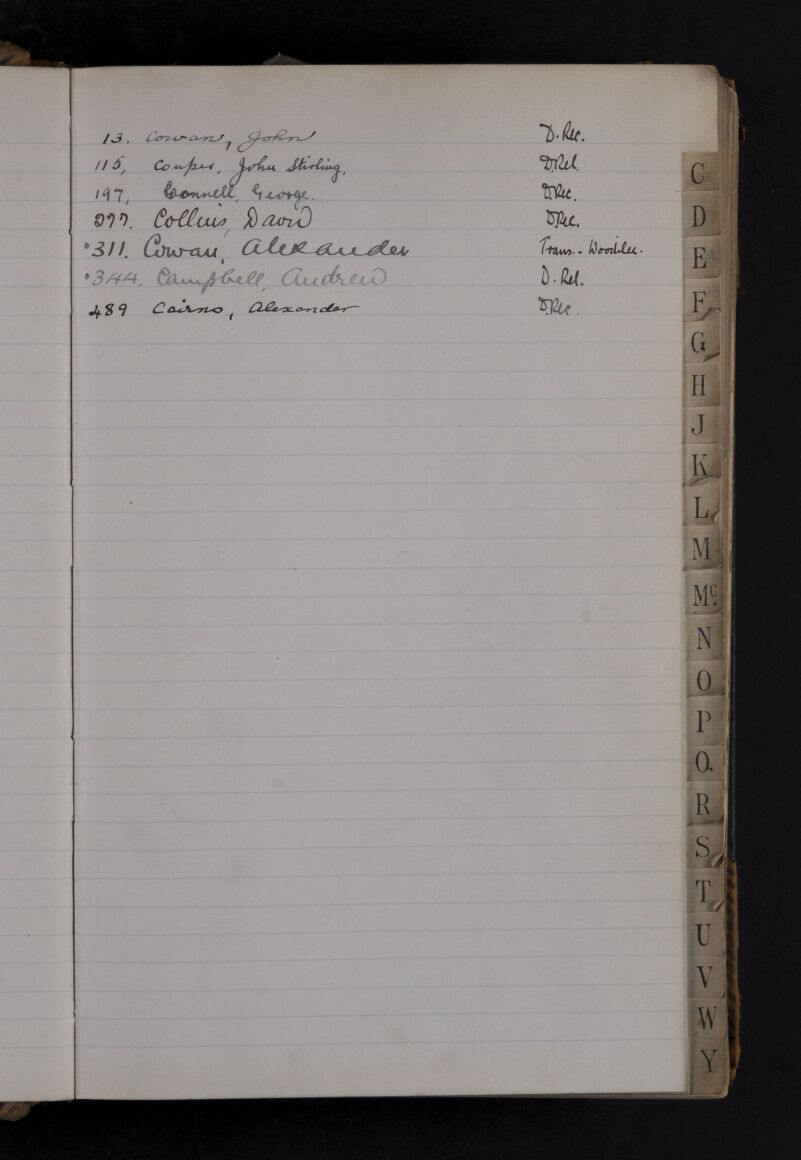 13. Cowan, John D. Rec.
115, Couper, John Stirling, D.Rel.
197, Connell, George. D.Rec.
277. Collins, David D.Rec.
311. Cowan, Alexander Trans. - Woodilee.
344. Campbell, Andrew D. Rel.
489 Cairns, Alexander D.Rec.
C
D
E
F
G
H
J
K
L
M
Mc.
N
O
P
Q
R
S
T
U
V
W
Y